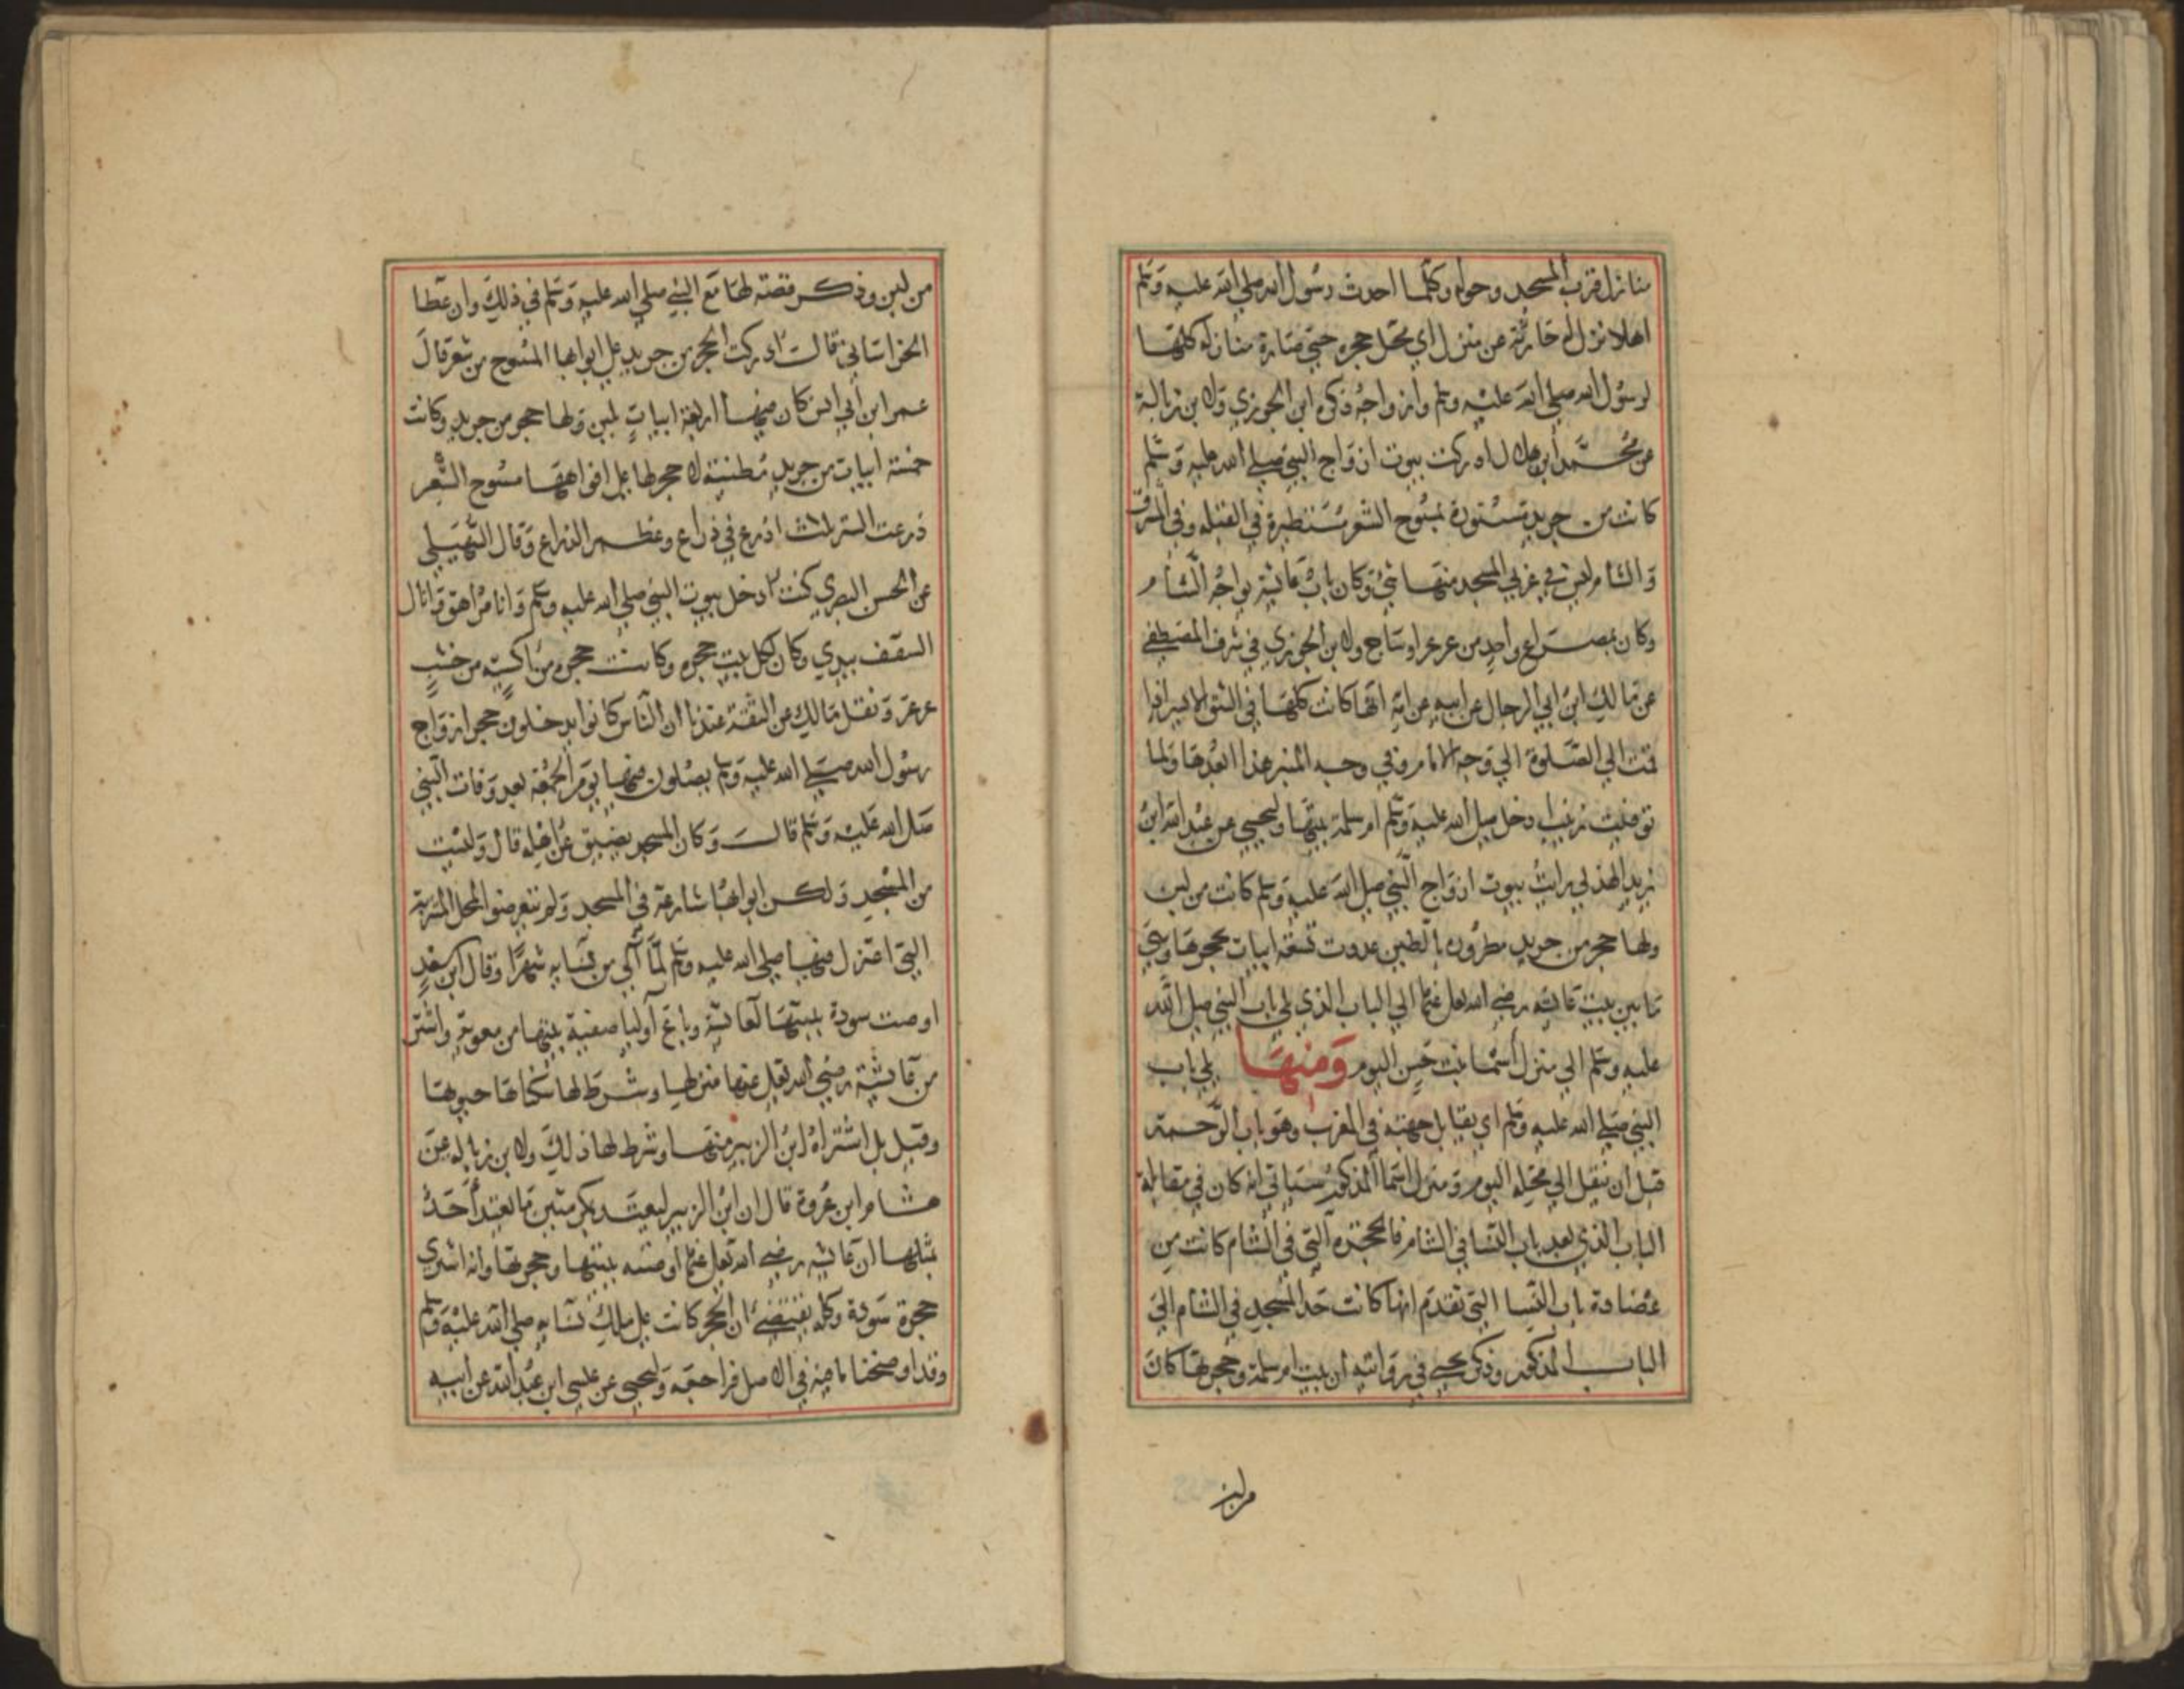 منازل قرب المسجد وحوله وكلما احدث رسول الله صلي الله عليه وسلم
اهلا نزل له حارثة عن منزل اي محل حجره حتي صارة منازله كلها
لرسول الله صلي الله عليه وسلم وازواجه ذكره ابن الجوزي ولابن زبالة
عن محمد ابن هلال ادركت بيوت ازواج النبي صلي الله عليه وسلم
كانت من جريد مستورة بمسوح الشعر مستطيرة في القبله وفي المشرق
والشام ليس في غربي المسجد منها شي وكان باب عائشة يواجه الشام
وكان بمصراع واحد من عرعر او ساج ولابن الجوزي في شرف المصطفي
عن مالك ابن ابي الرجال عن ابيه عن امه انها كانت كلها في الشق الايسر اذا
قمت الي الصلوة الي وجه الامام وفي وجه المنبر هذا ابعدها ولما
توفيت زينب ادخل صلي الله عليه وسلم ام سلمة بيتها وليحيي عن عبد الله ابن
يزيد الهذلي رايت بيوت ازواج النبي صلي الله عليه وسلم كانت من لبن
ولها حجر من جريد مطرورن بالطين عددت تسعة ابيات بحجرها وهي
ما بين بيت عائشه رضي الله تعلي عنها الي الباب الذي يلي باب النبي صلي الله
عليه وسلم الي منزل اسما بنت حسن اليوم ومنها يلي باب
النبي صلي الله عليه وسلم اي يقابل جهته في المغرب وهو باب الرحمة
قبل ان ينقل الي محله اليوم ومنزل اسما المذكور سياتي انه كان في مقابلة
الباب الذي بعد باب النسا في الشام فالحجره التي في الشام كانت من
عضادة باب النسا التي تقدم انها كانت حد المسجد في الشام الي
الباب المذكور وذكر يحيي في روايته ان بيت ام سلمة وحجرتها كان
من لبن
من لبن وذكر قصته لها مع النبي صلي الله عليه وسلم في ذلك وان عطا
الخراساني قالت ادركت الحجر من جريد علي ابوابها المسوح من شعر قال
عمر ابن ابي انس كان منها اربعة ابيات لبن ولها حجر من جريد وكانت
خمسة ابيات من جريد مطينة لا حجر لها علي افواهها مسوح الشعر
ذرعت الستر ثلاث اذرع في ذراع وعظم الذراع وقال السهيلي
عن الحسن البصري كنت ادخل بيوت النبي صلي الله عليه وسلم وانا مراهق فانال
السقف بيدي وكان لكل بيت حجره وكانت حجره من اكسيه من خشب
عرعر ونقل مالك عن الثقة عندنا ان الناس كانوا يدخلون حجر ازواج
رسول الله صلي الله عليه وسلم يصلون فيها يوم الجمعة بعد وفات النبي
صلي الله عليه وسلم قالت وكان المسجد يضيق عن اهله قال وليست
من المسجد ولكن ابوابها شارعة في المسجد ولم نتعرضوا لمحل المشربة
التي اعتزل فيها صلي الله عليه وسلم لما آلي من نسايه شهرا وقال ابن سعد
اوصت سودة ببيتها لعائشة وباع اوليا صفية بيتها من معوية واشتر
من عائشة رضي الله تعلي عنها منزلها وشرط لها سكناها حيوتها
وقيل بل اشتراه ابن الزبير منها وشرط لها ذلك ولابن زباله عن
هشام ابن عروة قال ان ابن الزبير ليعتد بمكرمتين ما يعتد احد
بمثلها ان عائشه رضي الله تعلي عنها اوصته ببيتها وحجرتها وانه اشتري
حجرة سودة وكله يقتضي ان الحجر كانت علي ملك نسايه صلي الله عليه وسلم
وقد اوضحنا ما فيه في الاصل فراجعه وليحيي عن عيسي ابن عبد الله عن ابيه